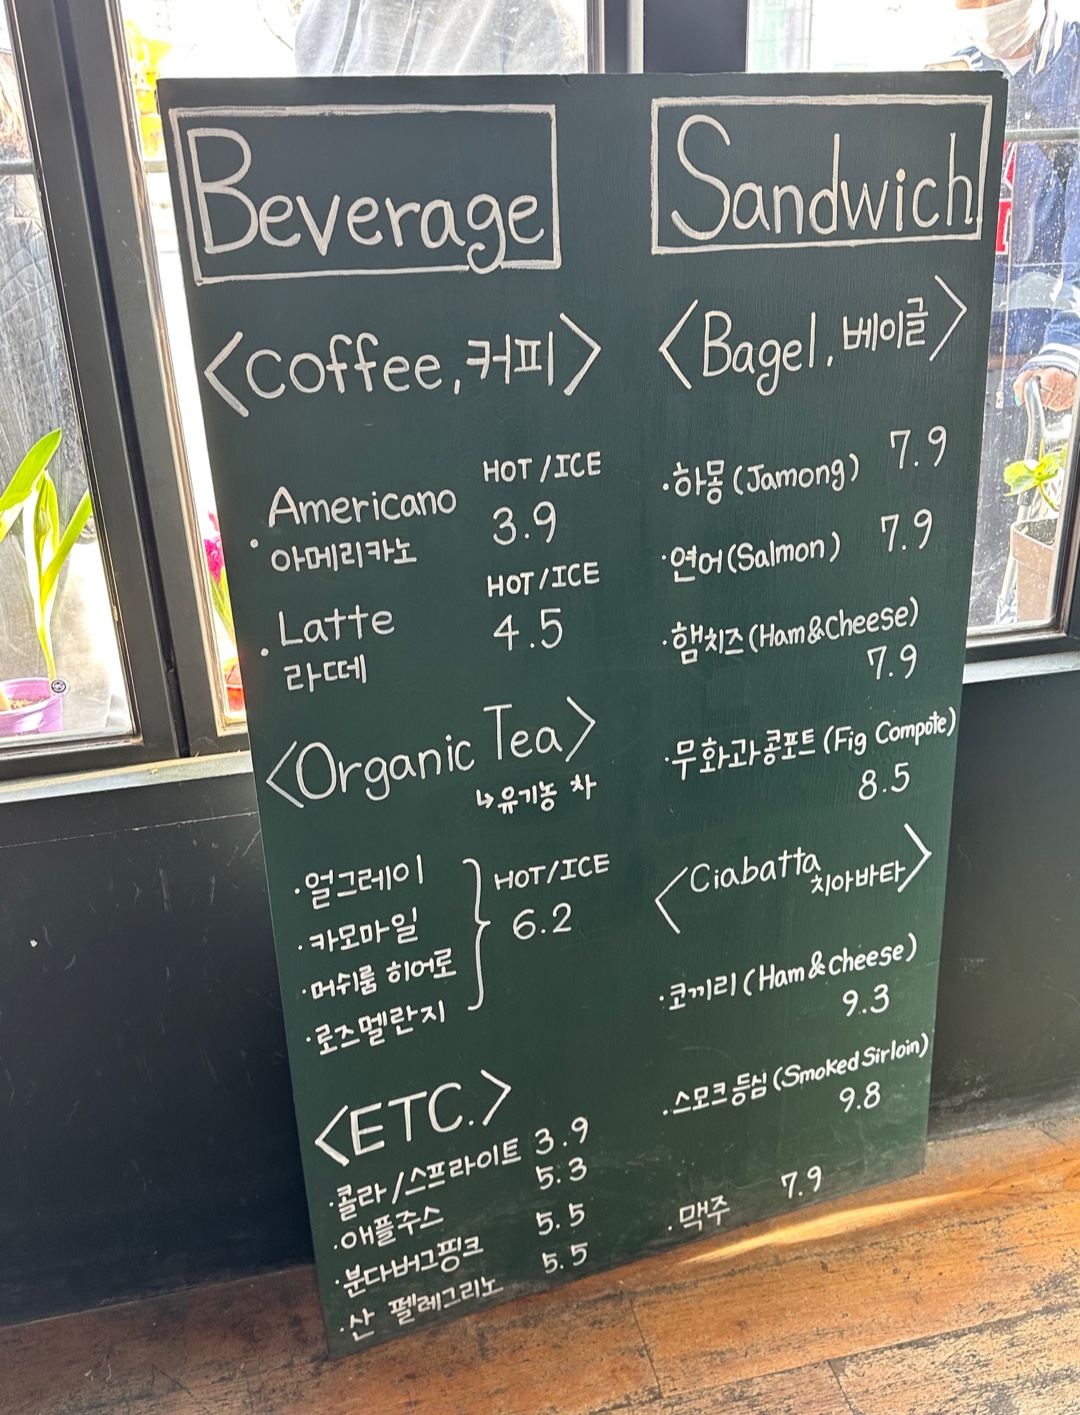 Beverage
<Coffee, 커피>
HOT/ICE
· Americano 3.9
아메리카노
HOT/ICE
· Latte 4.5
라떼
<Organic Tea>
↳유기농 차
·얼그레이
·카모마일
·머쉬룸 히어로
·로즈멜란지
HOT/ICE
6.2
<ETC.>
·콜라/스프라이트 3.9
·애플주스 5.3
·분다버그핑크 5.5
·산 펠레그리노 5.5
Sandwich
<Bagel, 베이글>
·하몽(Jamong) 7.9
·연어(Salmon) 7.9
·햄치즈(Ham&Cheese)
7.9
·무화과콩포트(Fig Compote)
8.5
<Ciabatta
치아바타>
·코끼리(Ham&cheese)
9.3
·스모크등심(Smoked Sirloin)
9.8
·맥주 7.9